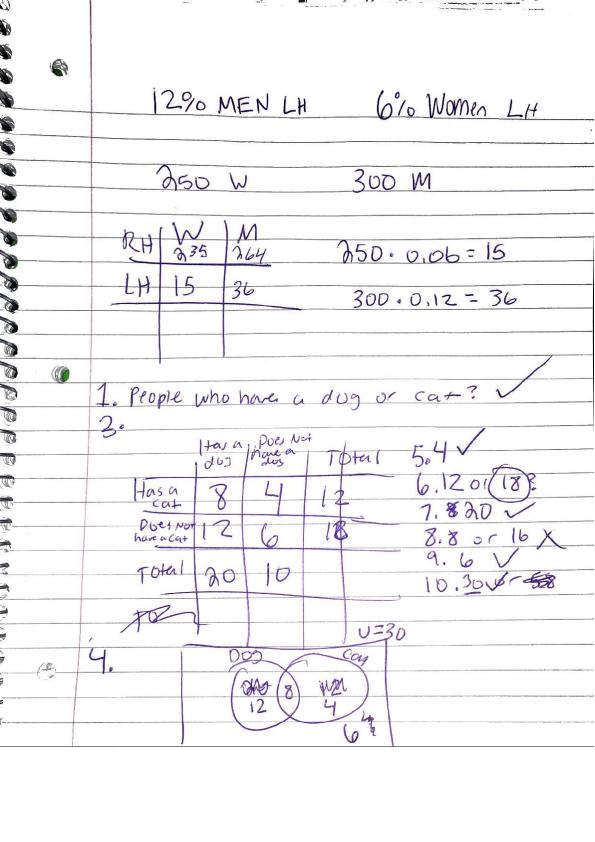 12% MEN LH 6% Women LH
250 W 300 M
W M
RH 235 264
LH 15 36
250 · 0.06 = 15
300 · 0.12 = 36
1. People who have a dog or cat? ✓
3.
Has a dog Does Not have a dog Total
Has a cat 8 4 12
Does Not have a cat 12 6 18
Total 20 10
5. 4 ✓
6. 12 or 18?
7. 20 ✓
8. 8 or 16 X
9. 6 ✓
10. 30 ✓ or
U=30
4.
DOG Cat
12 8 4
6